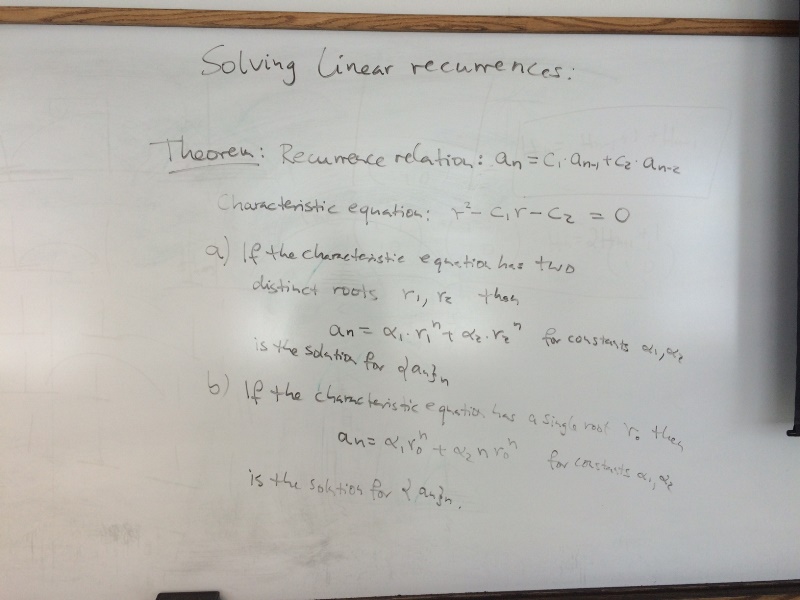 Solving linear recurrences:
Theorem: Recurrence relation: aₙ = c₁·aₙ₋₁ + c₂·aₙ₋₂
Characteristic equation: r² - c₁r - c₂ = 0
a) If the characteristic equation has two
distinct roots r₁, r₂ then
aₙ = α₁·r₁ⁿ + α₂·r₂ⁿ for constants α₁, α₂
is the solution for {aₙ}ₙ
b) If the characteristic equation has a single root r₀ then
aₙ = α₁r₀ⁿ + α₂ n r₀ⁿ for constants α₁, α₂
is the solution for {aₙ}ₙ.